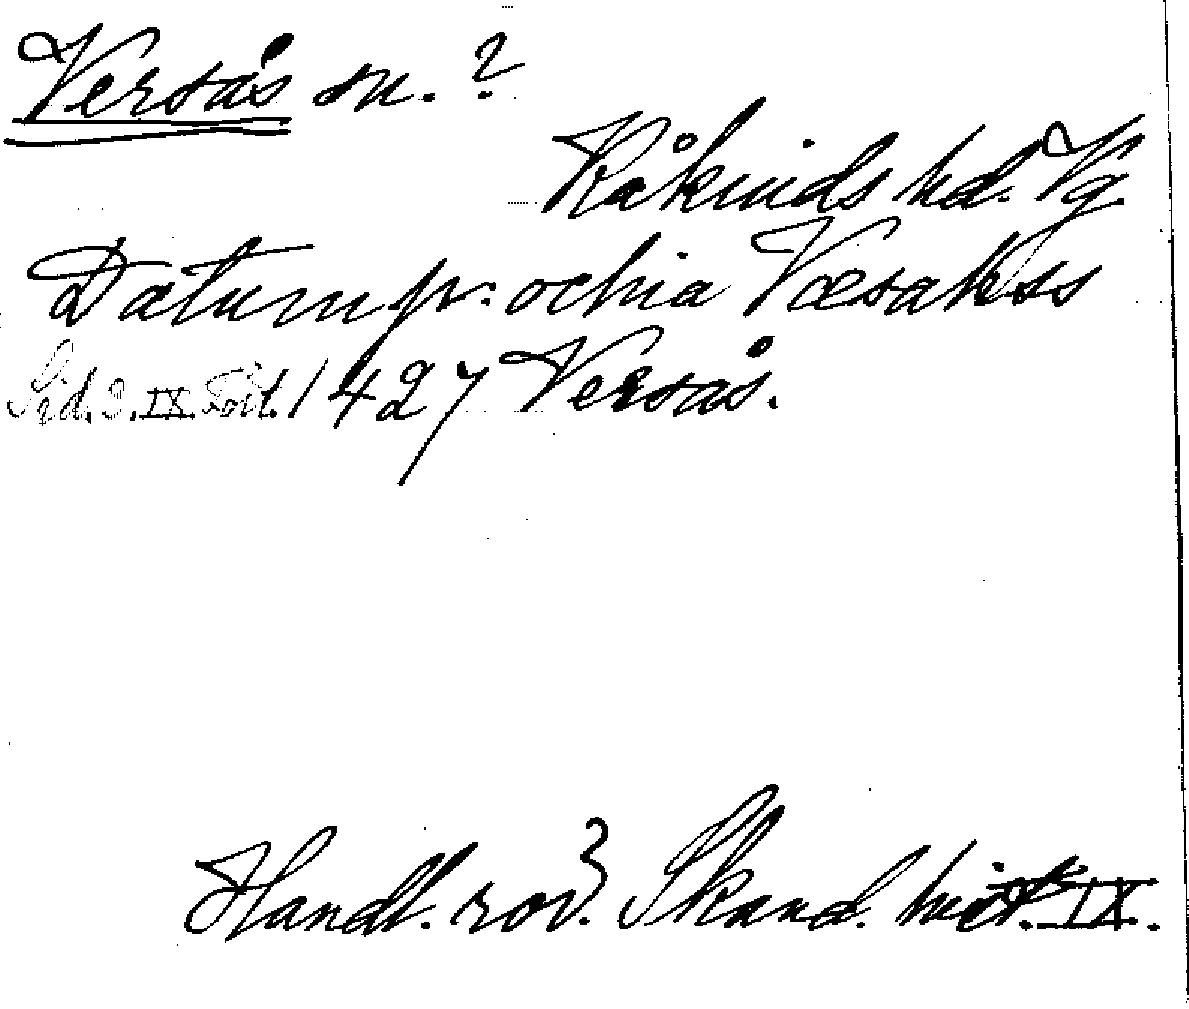 Versås sn. ?
Kåkinds hd. Vg.
Datum pr. ochia Væsakss
Sid. 3. IX Fört. 1427 Versås.
Handl. rör. Skand. hist. IX.